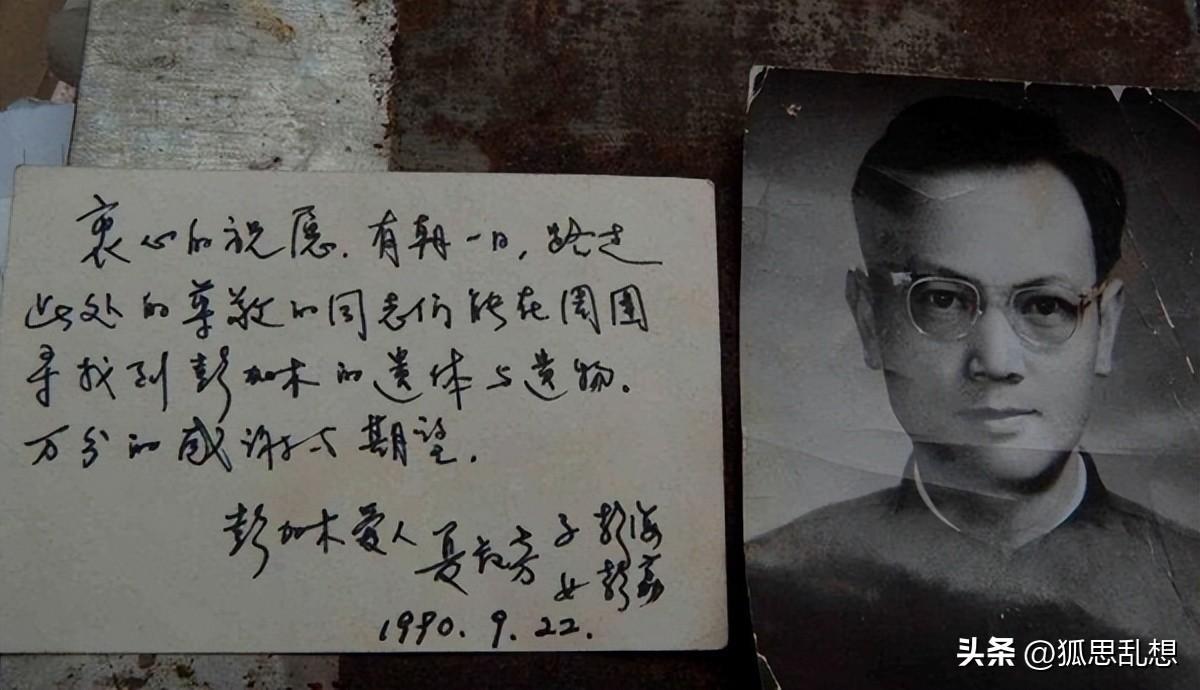 衷心的祝愿.有朝一日,路过
此处的尊敬的同志们能在周围
寻找到彭加木的遗体与遗物.
万分的感谢与期望.
彭加木爱人 夏叔芳 子彭海
女彭荔
1990.9.22.
头条 @狐思乱想